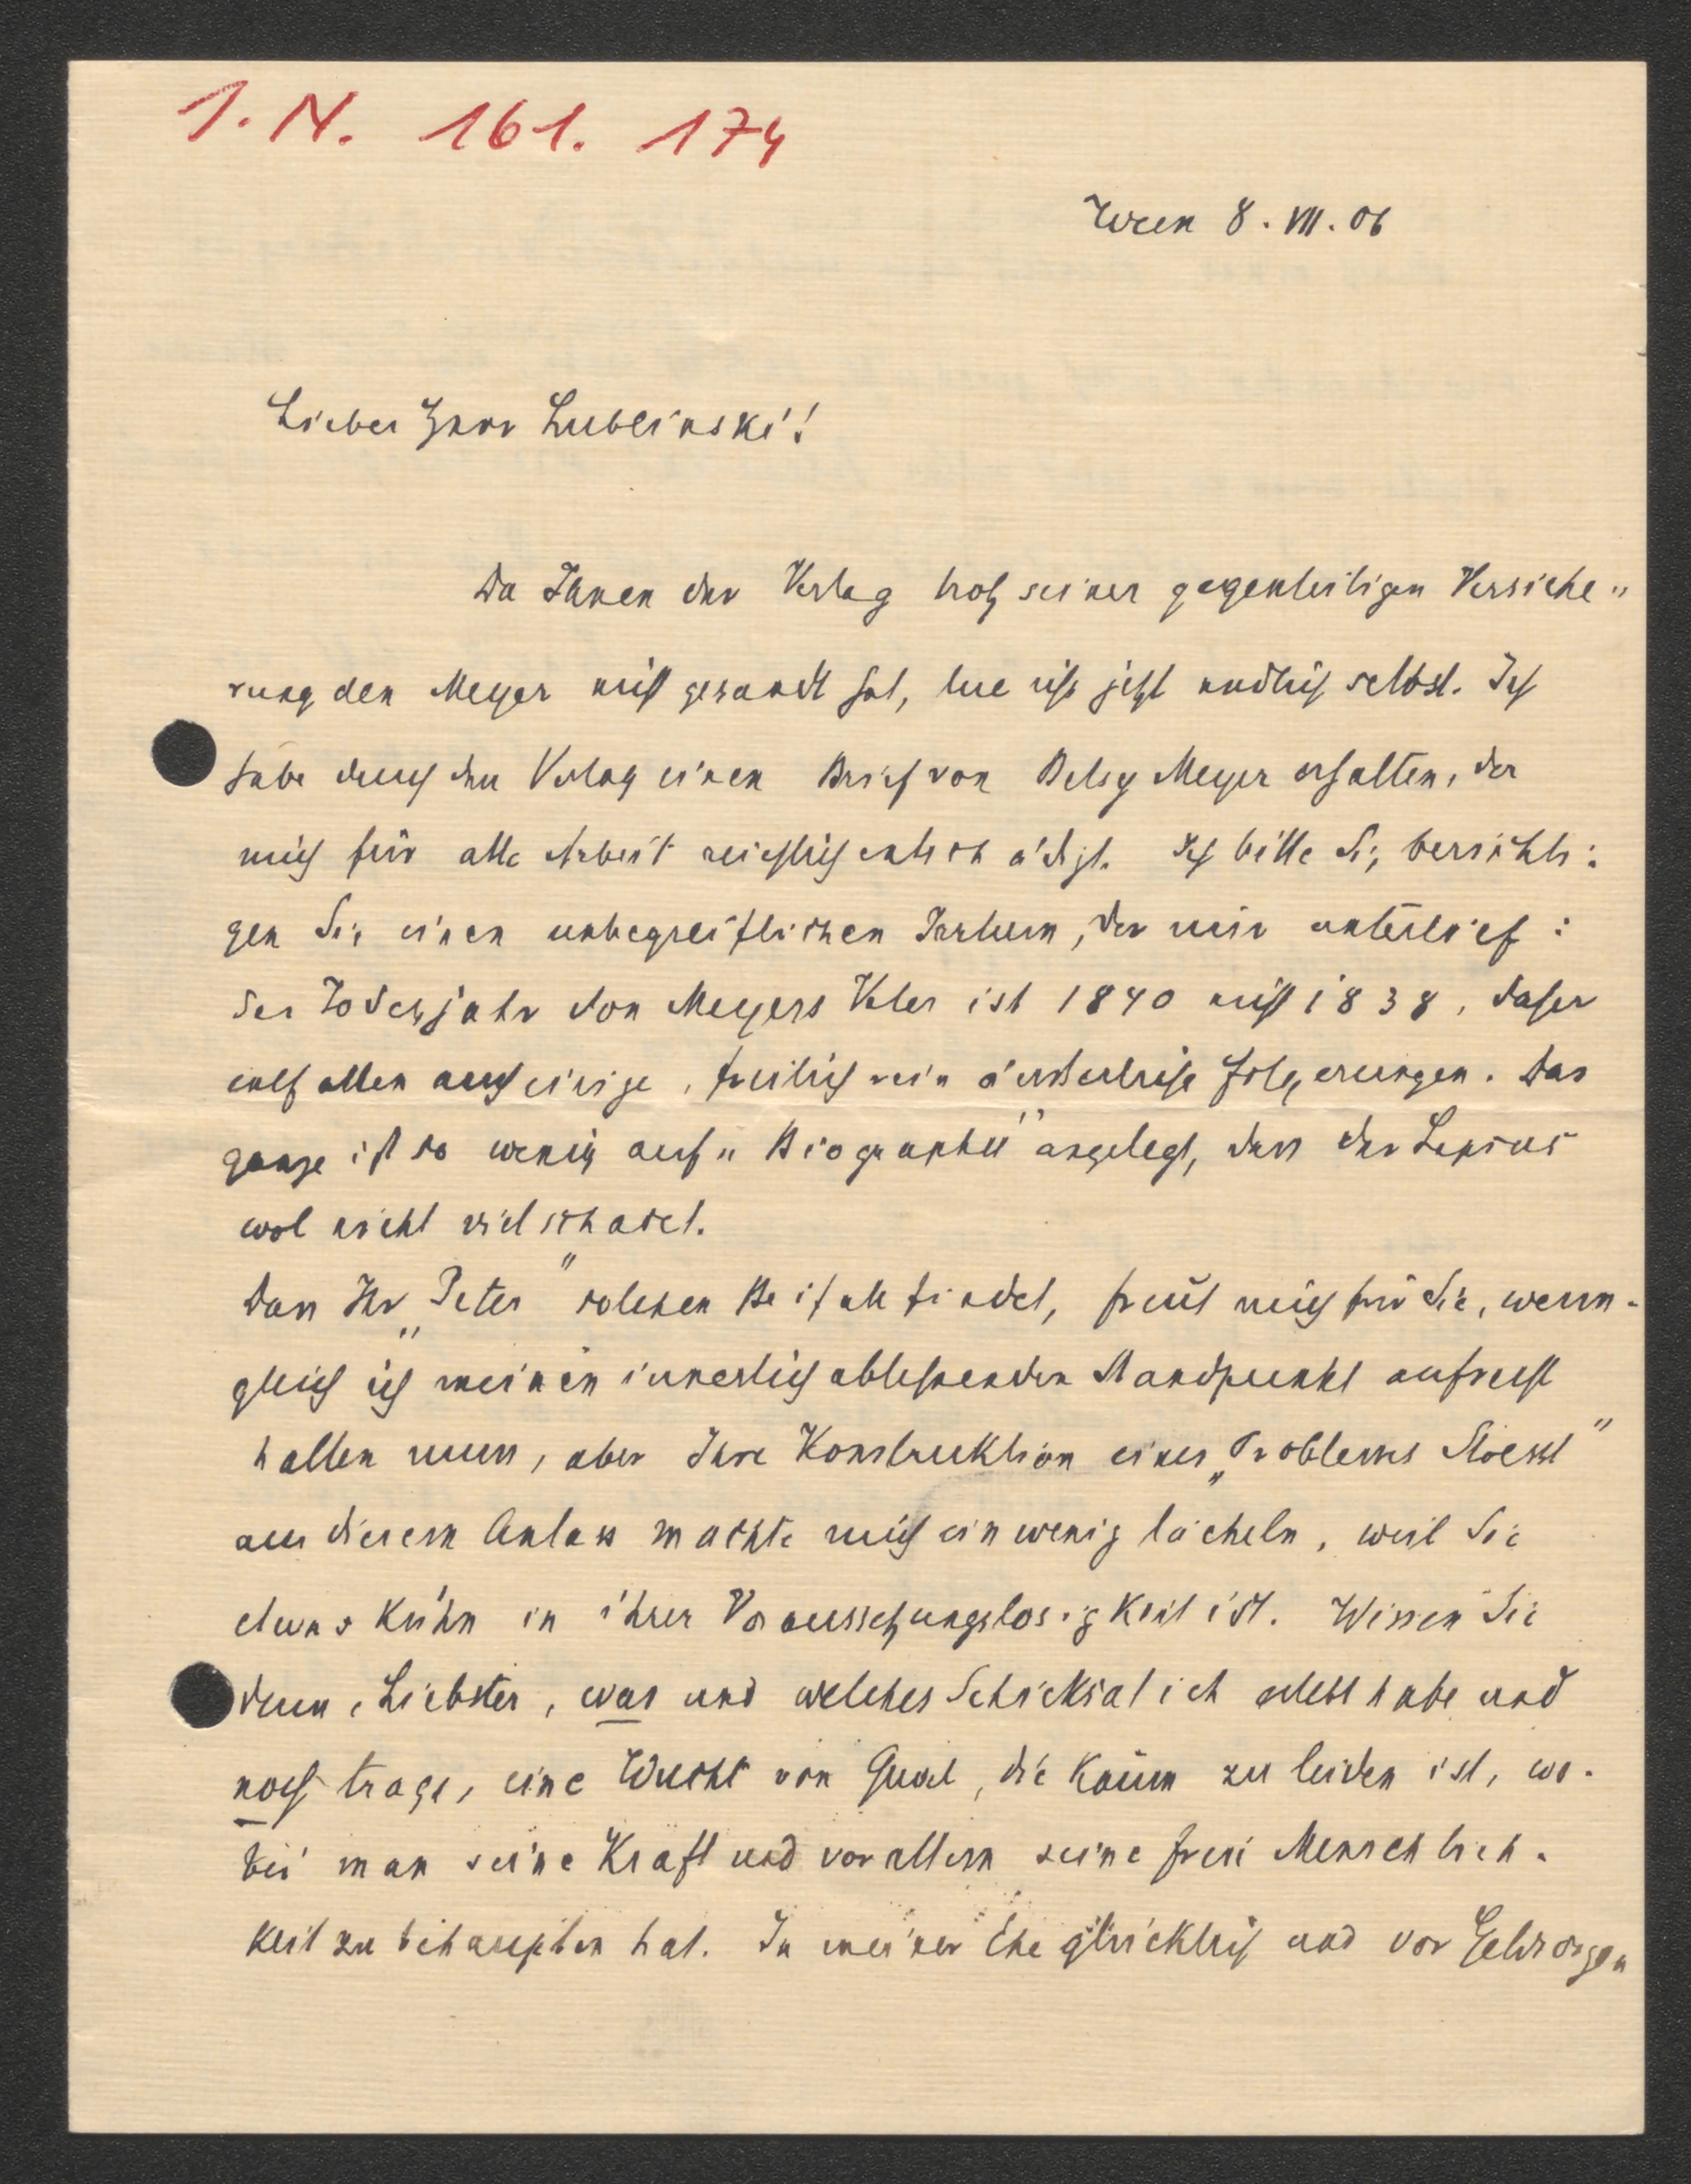 I. N. 161. 174
Wien 8. VII. 06
Lieber Herr Lublinski!
Da Ihnen der Verlag trotz seiner gegenteiligen Versiche„
rung den Meyer nicht gesandt hat, tue ichs jetzt endlich selbst. Ich
habe durch den Verlag einen Brief von Betsy Meyer erhalten, der
mich für alle Arbeit reichlich entschädigt. Ich bitte Sie, berichti:
gen Sie einen unbegreiflichen Irrtum, der mir unterlief:
Das Todesjahr von Meyers Vater ist 1840 nicht 1838, daher
entfallen auch einige, freilich rein äusserliche Folgerungen. Das
ganze ist so wenig auf „Biographie" angelegt, dass der Lapsus
wol nicht viel schadet.
Dass Ihr „Peter" solchen Beifall findet, freut mich für Sie, wenn-
gleich ich meinen innerlich ablehnenden Standpunkt aufrecht
halten muss, aber Ihre Konstruktion eines „Problems Stoessl"
aus diesem Anlass machte mich ein wenig lächeln, weil Sie
etwas kühn in ihrer Voraussetzungslosigkeit ist. Wissen Sie
denn, Liebster, was und welches Schicksal ich erlebt habe und
noch trage, eine Wucht von Qual, die kaum zu leiden ist, wo-
bei man seine Kraft und vor allem seine freie Menschlich-
keit zu behaupten hat. In meiner Ehe glücklich und vor Geldsorgen